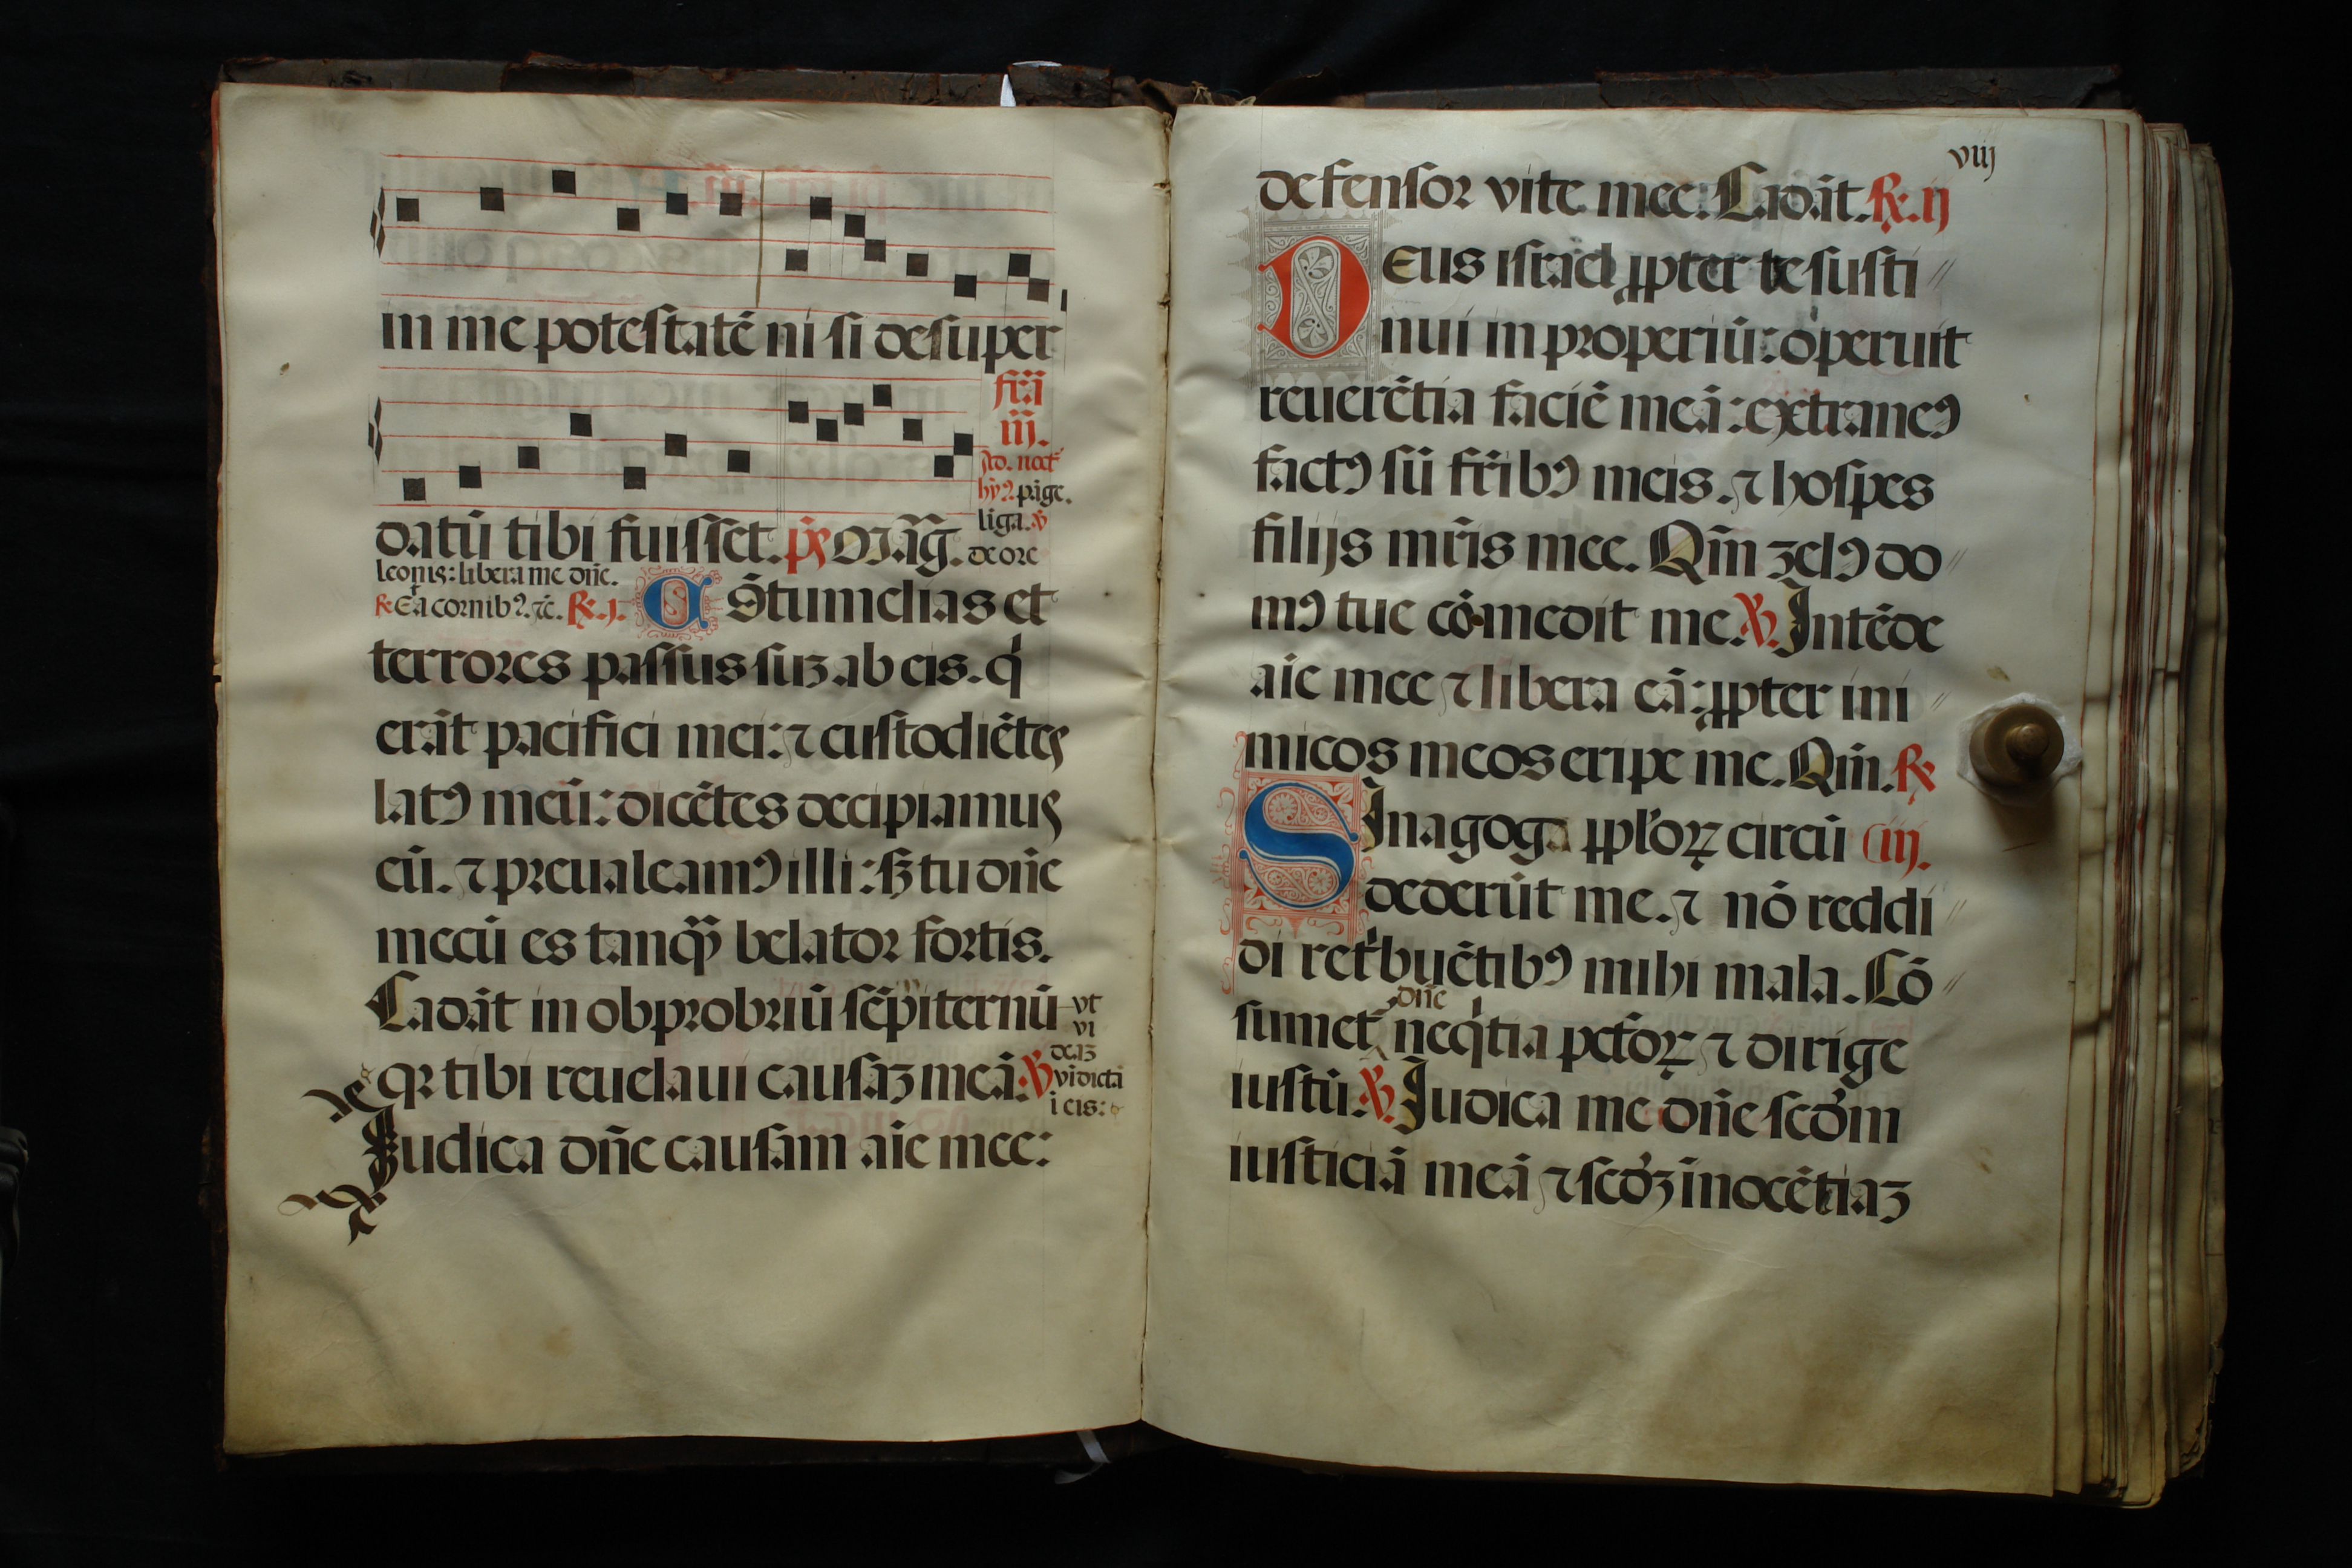 in me potestatē ni si desuper
feria
iii.
Ad. noct̄
hy̅ꝰ. pāge.
liga. ℣
datū tibi fuisset. p̄s Mag̅.
de ore
leonis: libera me dn̄e.
℟. Et a cornibꝰ. ⁊c̄. ℟. j. Cōtumelias et
terrores passus suꝫ ab eis. q̇
erāt pacifici mei: ⁊ custodiētes
latꝰ meū: dicētes decipiamus
eū. ⁊ preualeamꝰ illi: sꝫ tu dn̄e
mecū es tanq̄ȝ belator fortis.
Cadāt in obprobriū sēpiternū
vt
vi
deaꝫ
qꝛ tibi reuelaui causaꝫ meā: ℣
vīdictā
i eis:
Iudica dn̄e causam aīe mee:
viij
defensor vite mee. Cadāt. ℟. ij
Deus israel ꝓpter te susti
nui in properiū: operuit
reuerētia faciē meā: extraneꝰ
factꝰ sū fr̄ibꝰ meis. ⁊ hospes
filijs mr̄is mee. Qm̄ zelꝰ do
mꝰ tue cōmedit me. ℣. Intēde
aīe mee ⁊ libera eā: ꝓpter ini
micos meos eripe me. Qm̄. ℟
Sinagoga ꝓpl̄oꝝ circū iij.
dederūt me. ⁊ nō reddi
di ret̍buētibꝰ mihi mala. Cō
dn̄e
sumet̍ neq̇tia pct̄oꝝ ⁊ dirige
iustū. ℣. Iudica me dn̄e scd̄m
iusticiā meā ⁊ scd̄ꝫ īnocētiaꝫ